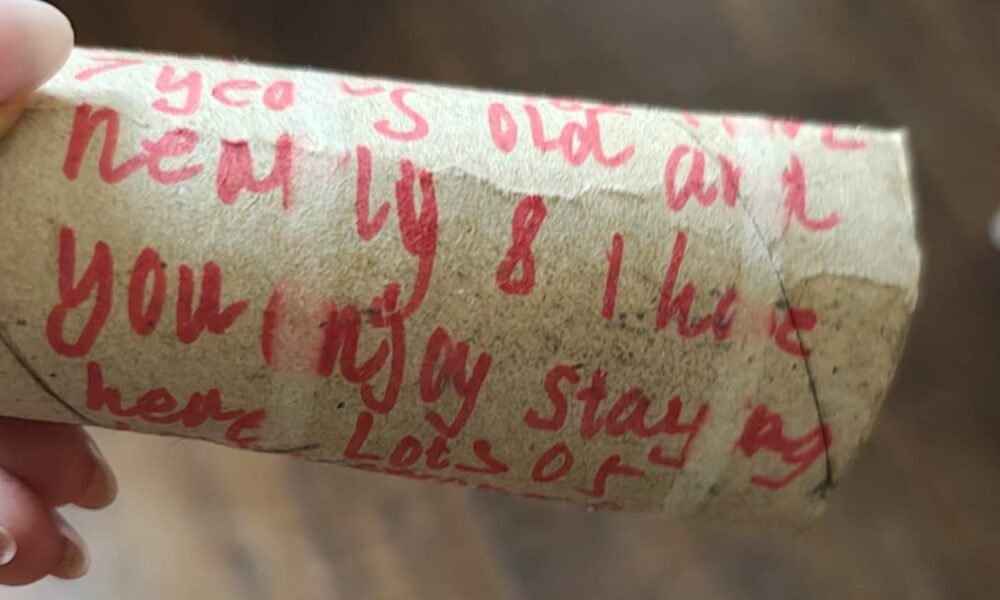 years old and
nearly 8 I hope
you enjoy staying
here Lots of